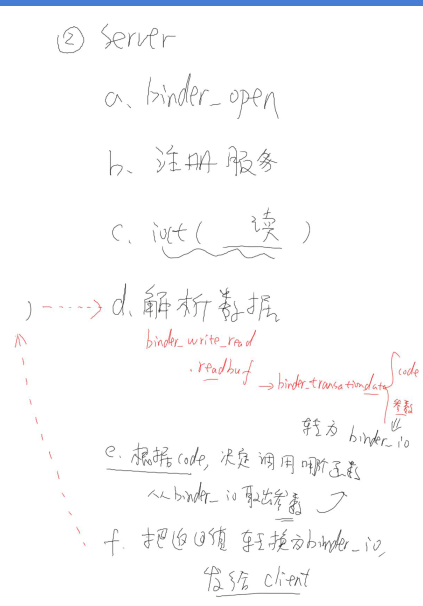 ② Server
a、binder_open
b、注册服务
c、ioct( 读 )
) d、解析数据
binder_write_read
.readbuf → binder_transationdata { code
参数
转为 binder_io
e. 根据code, 决定调用哪个函数
从binder_io 取出参数
f. 把返回值 转换为binder_io,
发给 client